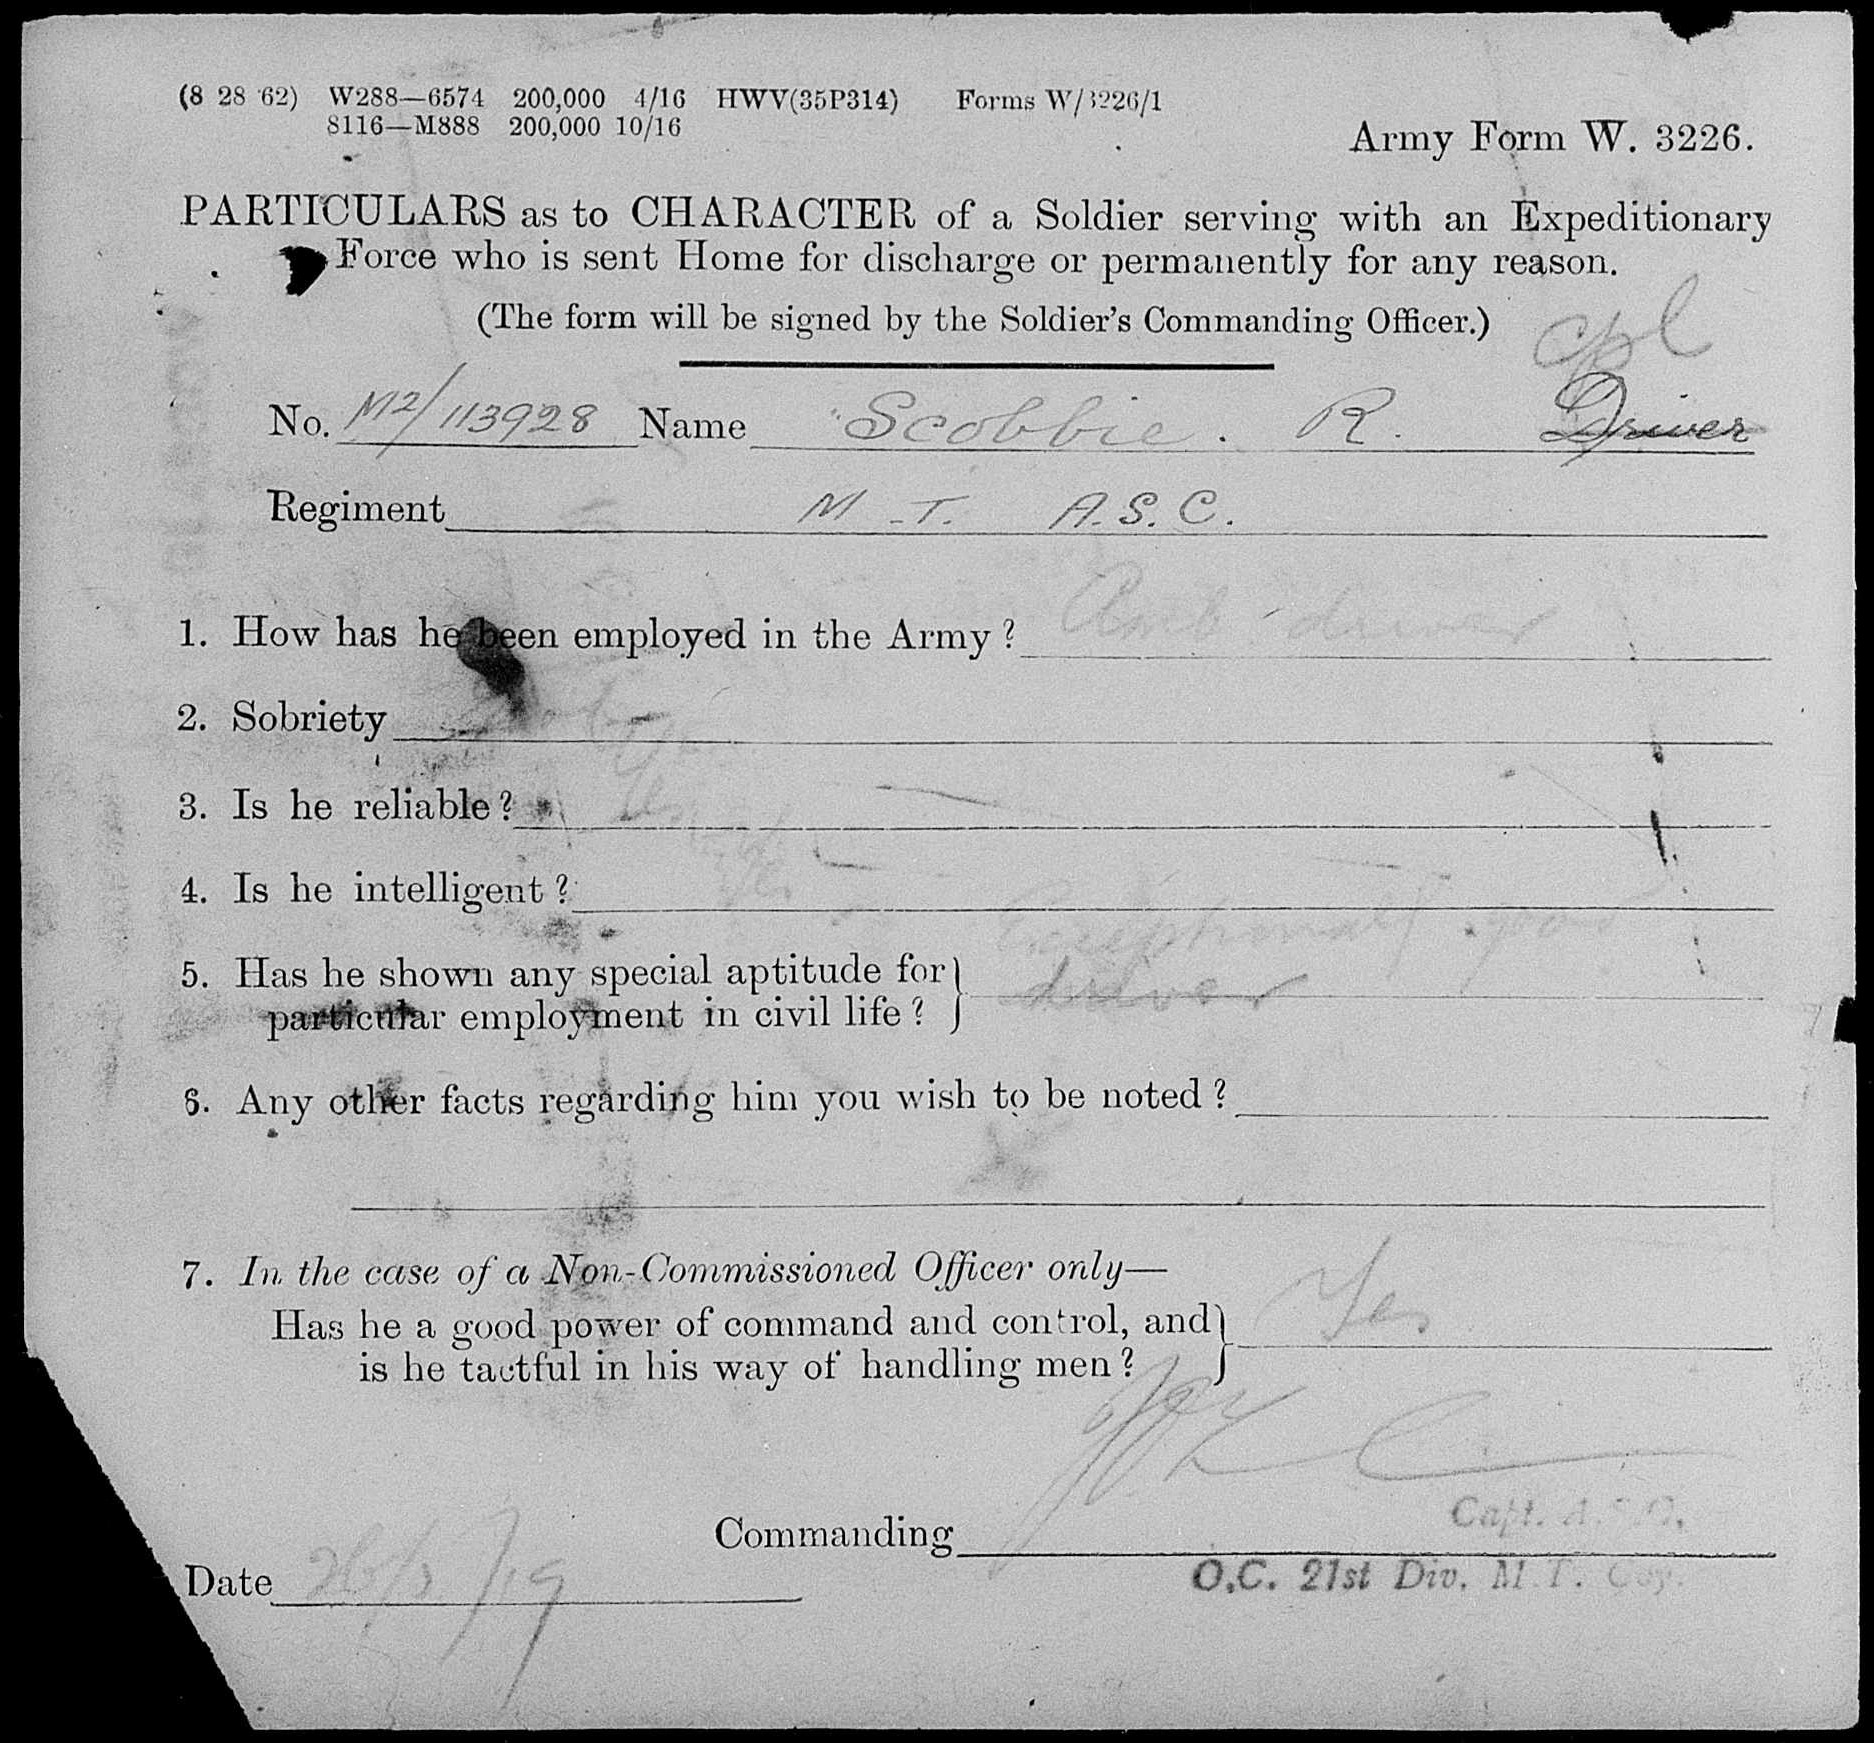 (8 28 62) W288—6574 200,000 4/16 HWV(35P314) Forms W/3226/1
8116—M888 200,000 10/16
Army Form W. 3226.
PARTICULARS as to CHARACTER of a Soldier serving with an Expeditionary
Force who is sent Home for discharge or permanently for any reason.
(The form will be signed by the Soldier's Commanding Officer.)
Cpl
No. M2/113928 Name Scobbie. R. Driver
Regiment M.T. A.S.C.
1. How has he been employed in the Army? Amb driver
2. Sobriety Sober
3. Is he reliable? Yes
4. Is he intelligent? Yes
Exceptionally good
5. Has he shown any special aptitude for
particular employment in civil life? driver
6. Any other facts regarding him you wish to be noted?
7. In the case of a Non-Commissioned Officer only—
Has he a good power of command and control, and
is he tactful in his way of handling men? Yes
Capt. A.S.C.
Commanding
O.C. 21st Div. M.T. Coy.
Date /19